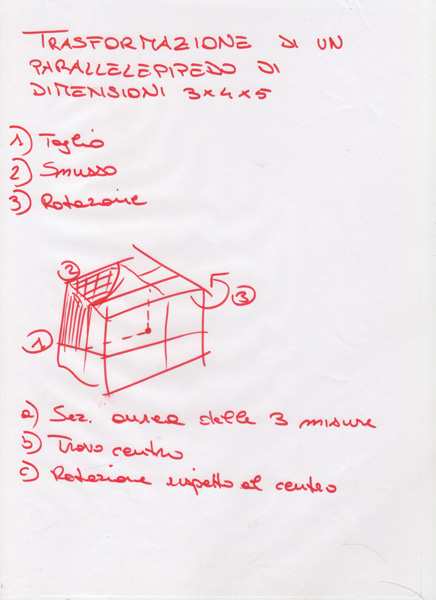 TRASFORMAZIONE DI UN
PARALLELEPIPEDO DI
DIMENSIONI 3x4x5
1) Taglio
2) Smusso
3) Rotazione
2
3
1
a) Sez. aurea delle 3 misure
b) Trovo centro
c) Rotazione rispetto al centro